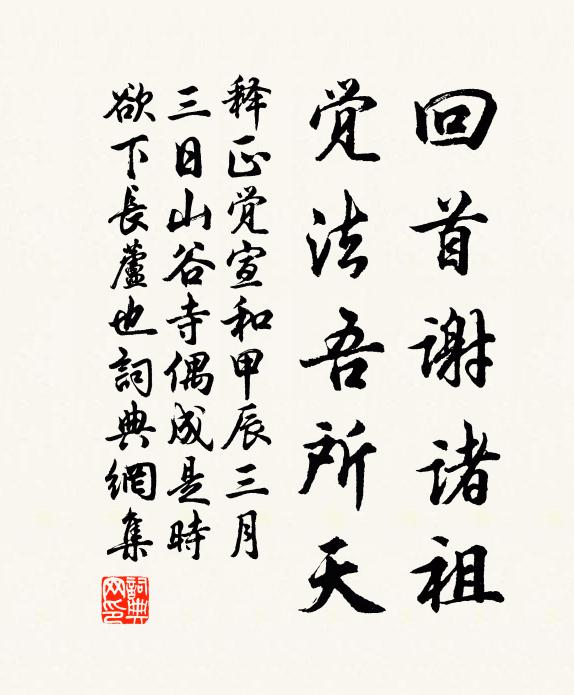 回首谢诸祖
觉法吾所天
释正觉宣和甲辰三月
三日山谷寺偶成是時
欲下長蘆也詞典網集
詞典网印